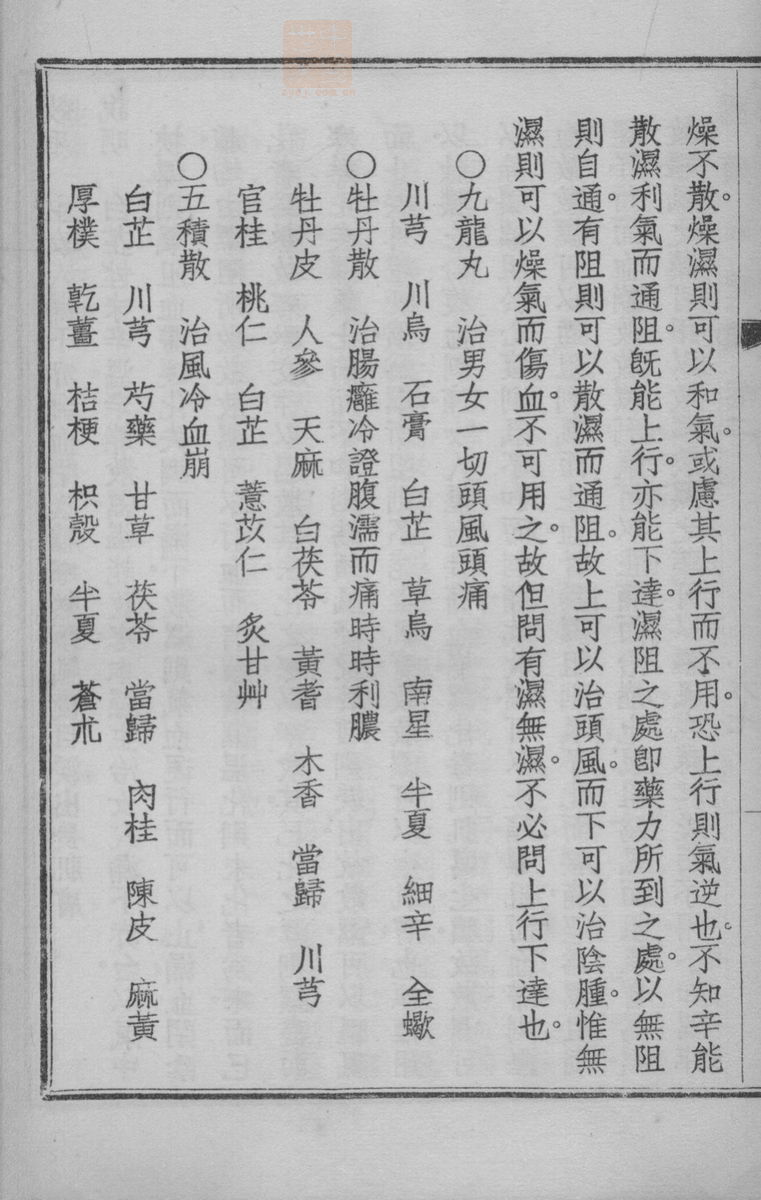 燥不散。燥濕則可以和氣。或慮其上行而不用。恐上行則氣逆也。不知辛能
散濕利氣而通阻。旣能上行。亦能下達。濕阻之處卽藥力所到之處。以無阻
則自通。有阻則可以散濕而通阻。故上可以治頭風。而下可以治陰腫。惟無
濕則可以燥氣而傷血。不可用之。故但問有濕無濕。不必問上行下達也。
〇九龍丸　治男女一切頭風頭痛
川芎　川烏　石膏　白芷　草烏　南星　半夏　細辛　全蠍
〇牡丹散　治腸癰冷證腹濡而痛時時利膿
牡丹皮　人參　天麻　白茯苓　黃耆　木香　當歸　川芎
官桂　桃仁　白芷　薏苡仁　炙甘艸
〇五積散　治風冷血崩
白芷　川芎　芍藥　甘草　茯苓　當歸　肉桂　陳皮　麻黃
厚樸　乾薑　桔梗　枳殼　半夏　蒼朮